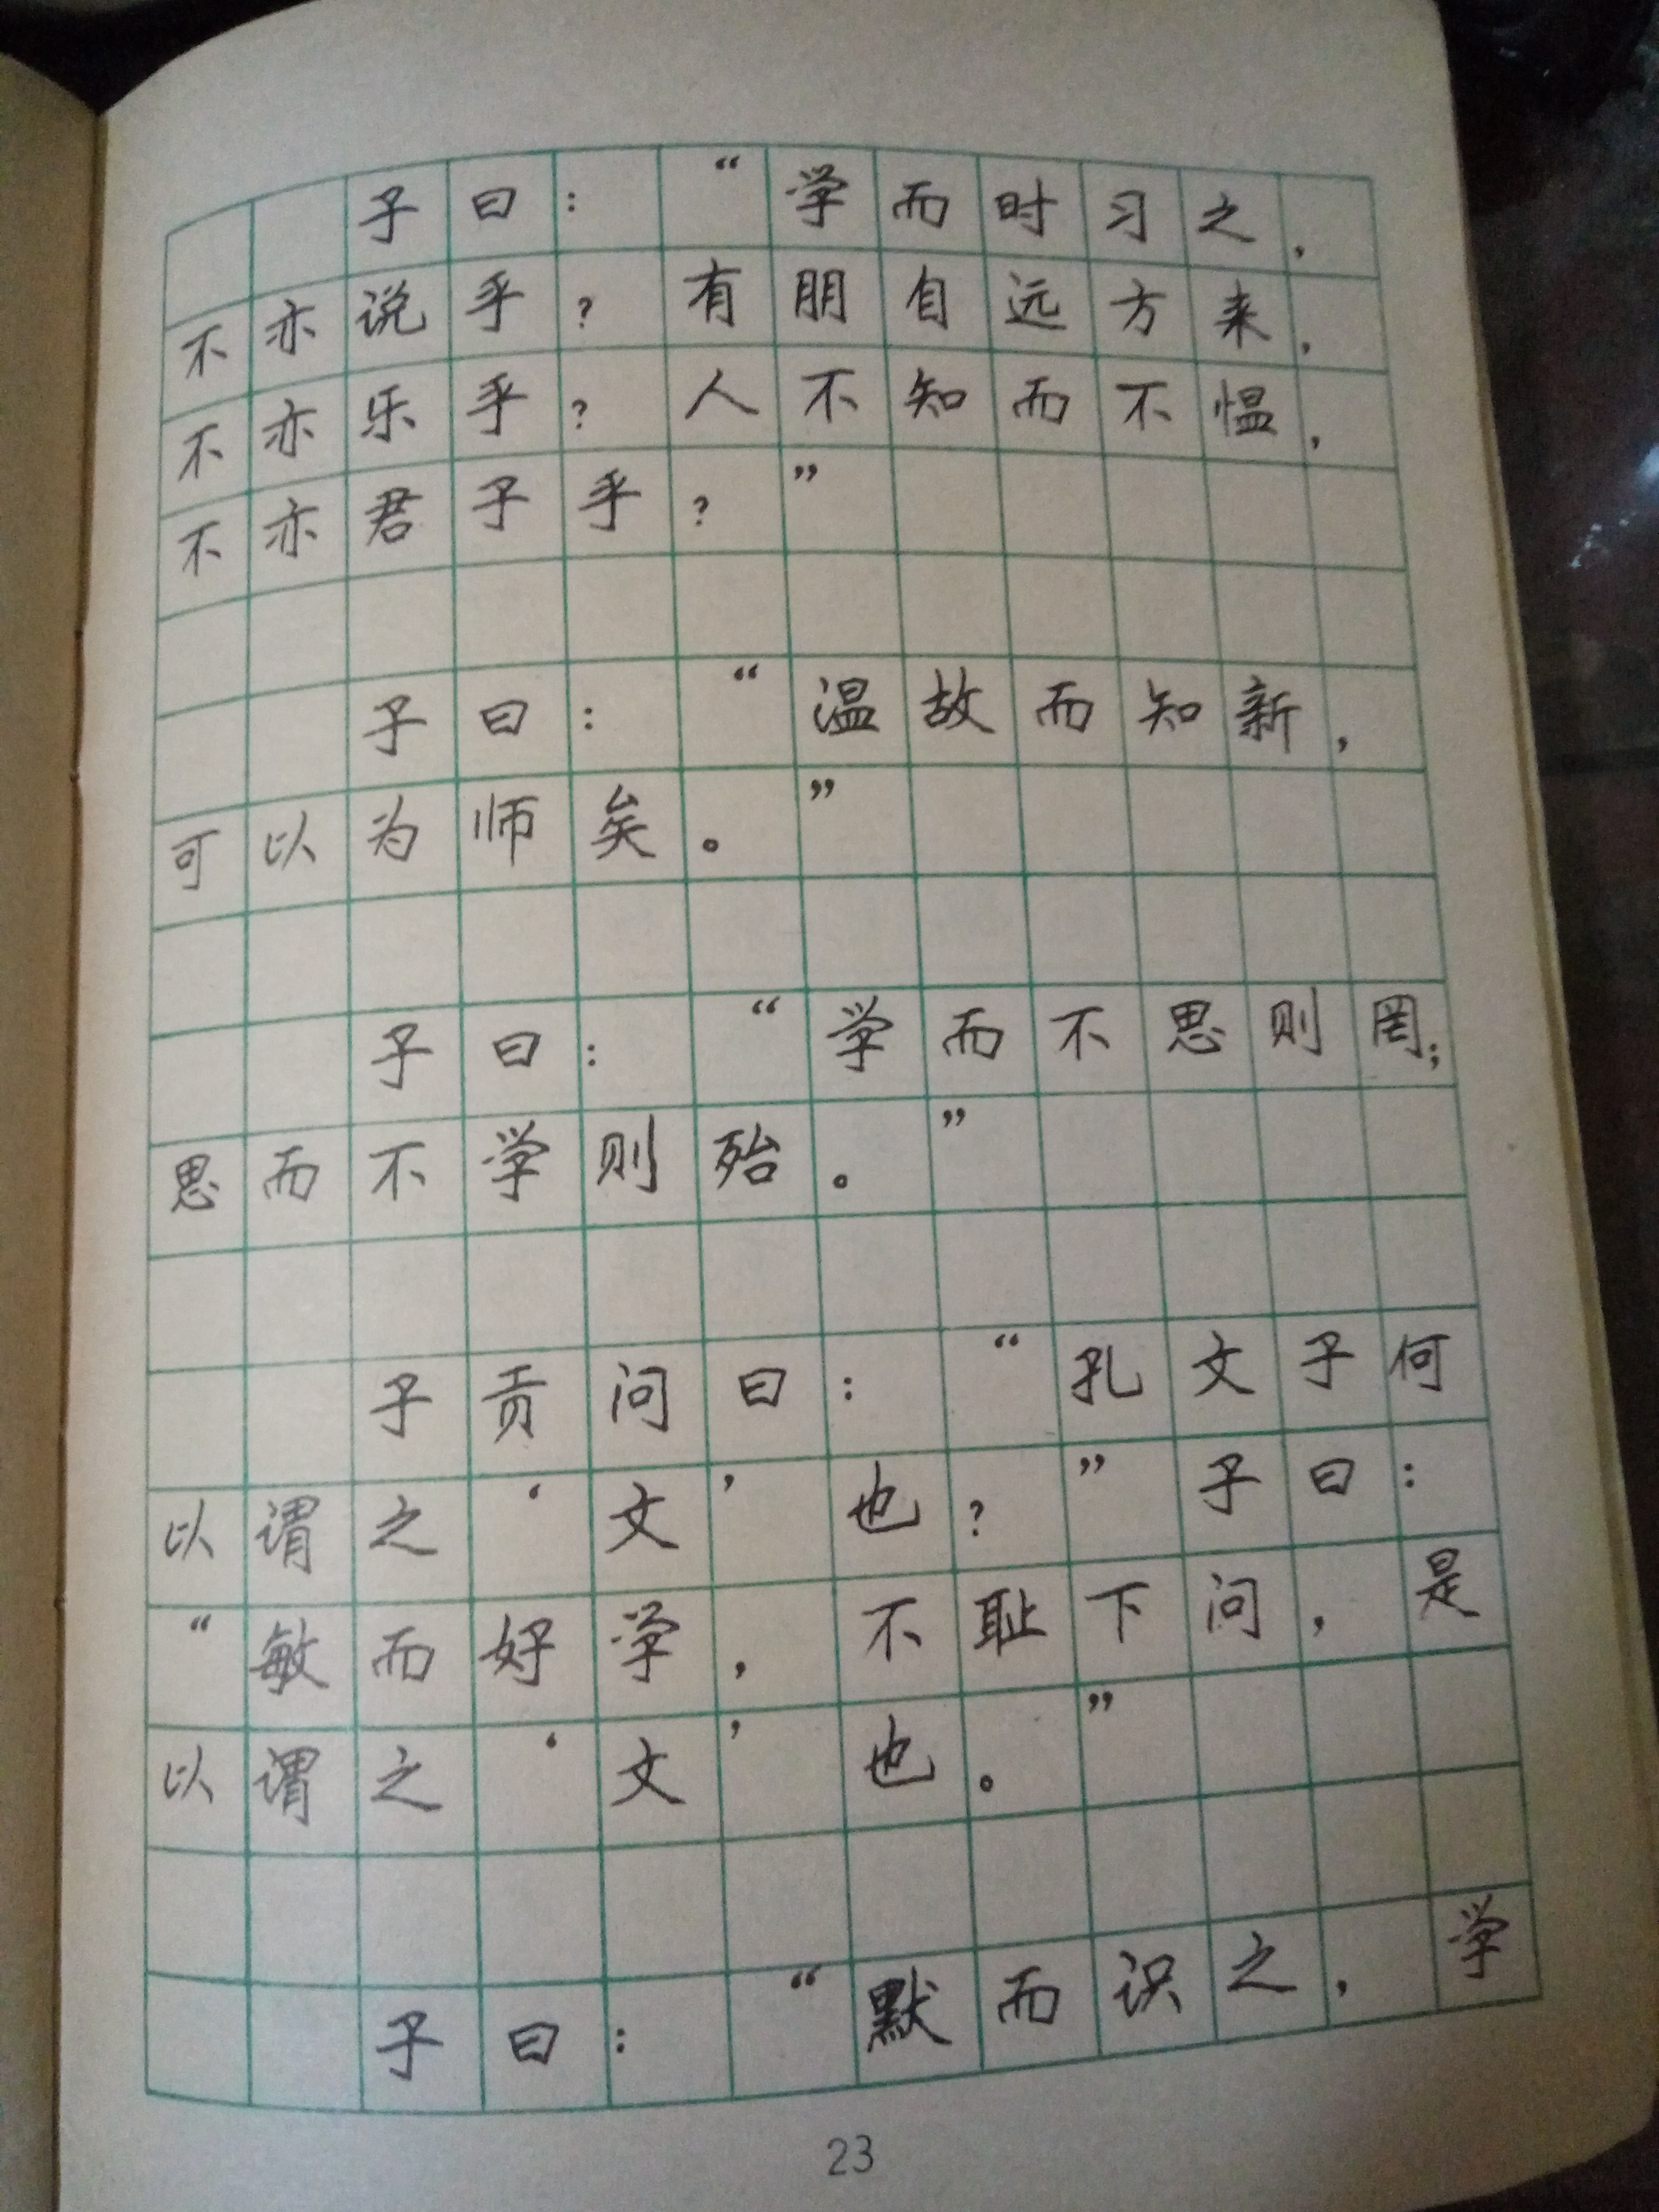 子曰：“学而时习之，
不亦说乎？有朋自远方来，
不亦乐乎？人不知而不愠，
不亦君子乎？”
子曰：“温故而知新，
可以为师矣。”
子曰：“学而不思则罔；
思而不学则殆。”
子贡问曰：“孔文子何
以谓之‘文’也？”子曰：
“敏而好学，不耻下问，是
以谓之‘文’也。”
子曰：“默而识之，学
23